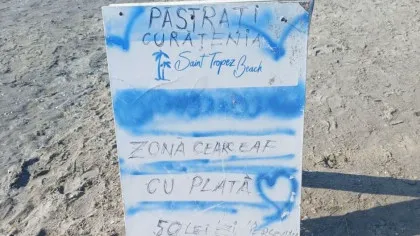 PASTRATI
CURATENIA
Saint Tropez Beach
ZONĂ CEARCEAF
CU PLATĂ
50 LEI